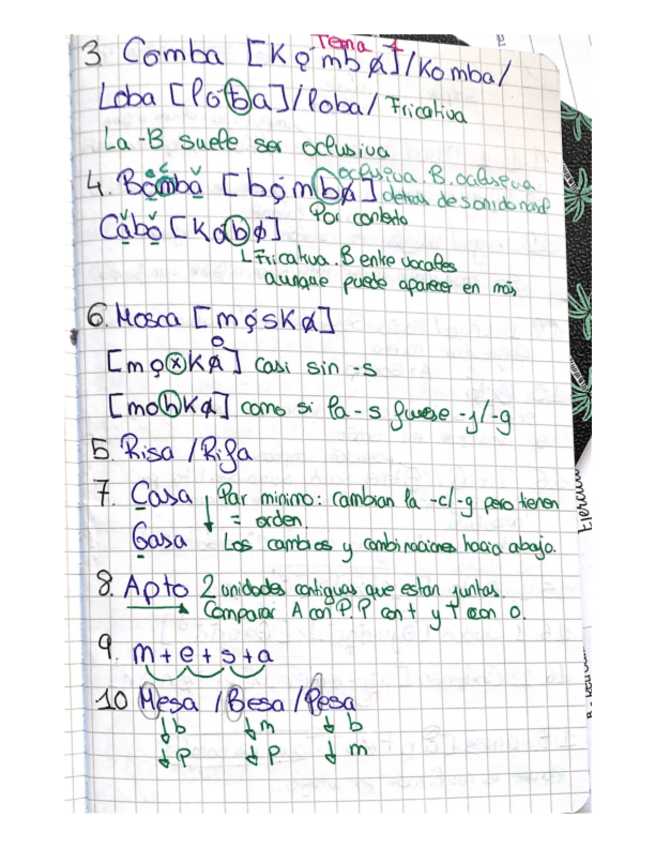 Tema 1
3 Comba [Kǫ́mbą]/Komba/
Loba [lóba]/loba/ Fricativa
La -B suele ser oclusiva
4. Bomba [bómba] oclusiva B. oclusiva
detras de sonido nasal
Por contexto
Cabo [Kabo]
Fricativa. B entre vocales
aunque puede aparecer en más
6. Mosca [mǫ́sKa]
[mǫxKA] casi sin -s
[mohKa] como si la -s fuese -j/-g
5. Risa /Rifa
7. Casa Par minimo: cambian la -c/-g pero tienen
= orden.
Gasa Los cambios y combinaciones hacia abajo.
8. Apto 2 unidades contiguas que estan juntas.
Comparar A con P. P con t y T con O.
9. m+e+s+a
10 Mesa /Besa/Pesa
↓b ↓m ↓b
↓p ↓p ↓m